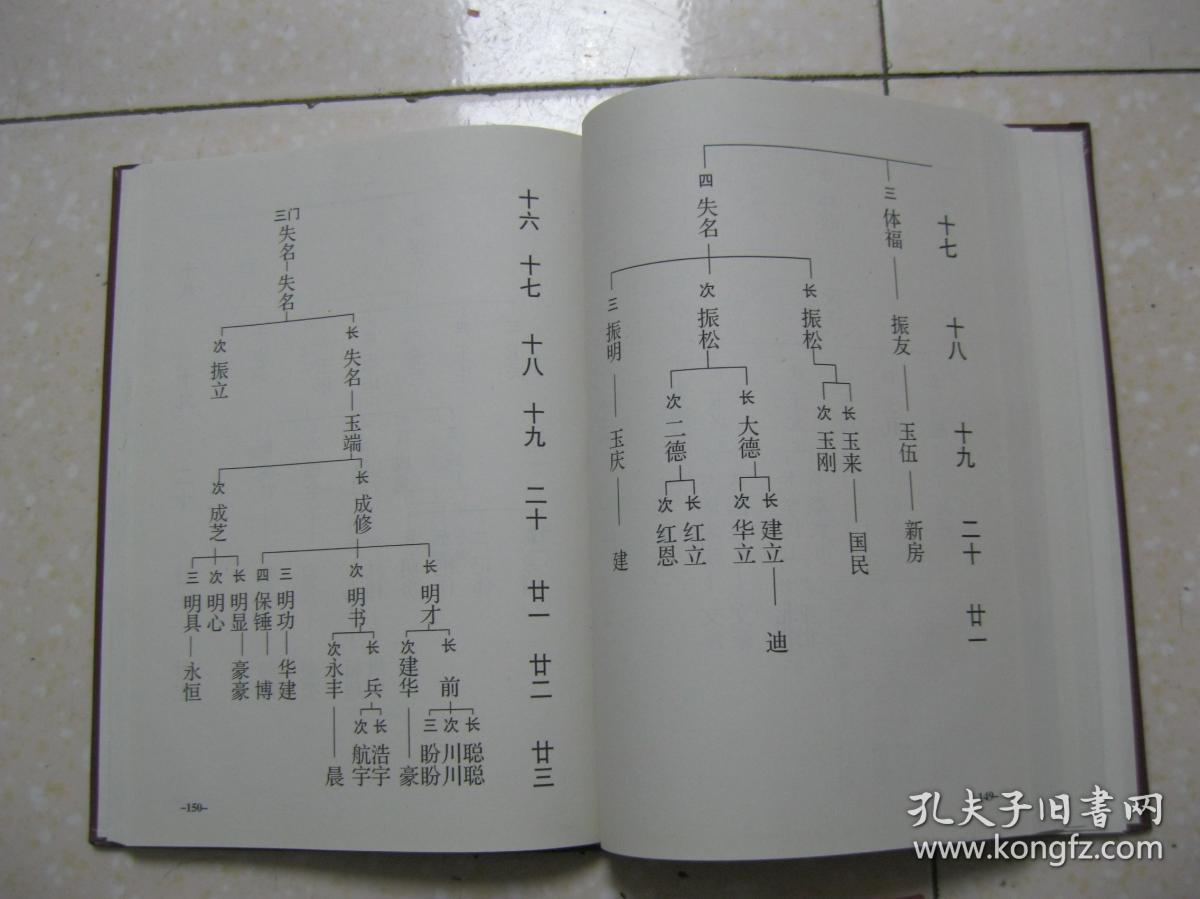 十七
十八
十九
二十
廿一
三 体福
振友
玉伍
新房
四 失名
长 振松
长 玉来
国民
次 玉刚
次 振松
长 大德
长 建立
迪
次 华立
次 二德
长 红立
次 红恩
三 振明
玉庆
建
149-
十六
十七
十八
十九
二十
廿一
廿二
廿三
三门 失名
失名
长 失名
玉端
长 成修
长 明才
长 前
长 聪聪
次 川川
三 盼盼
次 建华
豪
次 明书
长 兵
长 浩宇
次 航宇
次 永丰
晨
三 明功
华建
四 保锤
博
次 成芝
长 明显
豪豪
次 明心
三 明具
永恒
次 振立
-150-
孔夫子旧书网
www.kongfz.com